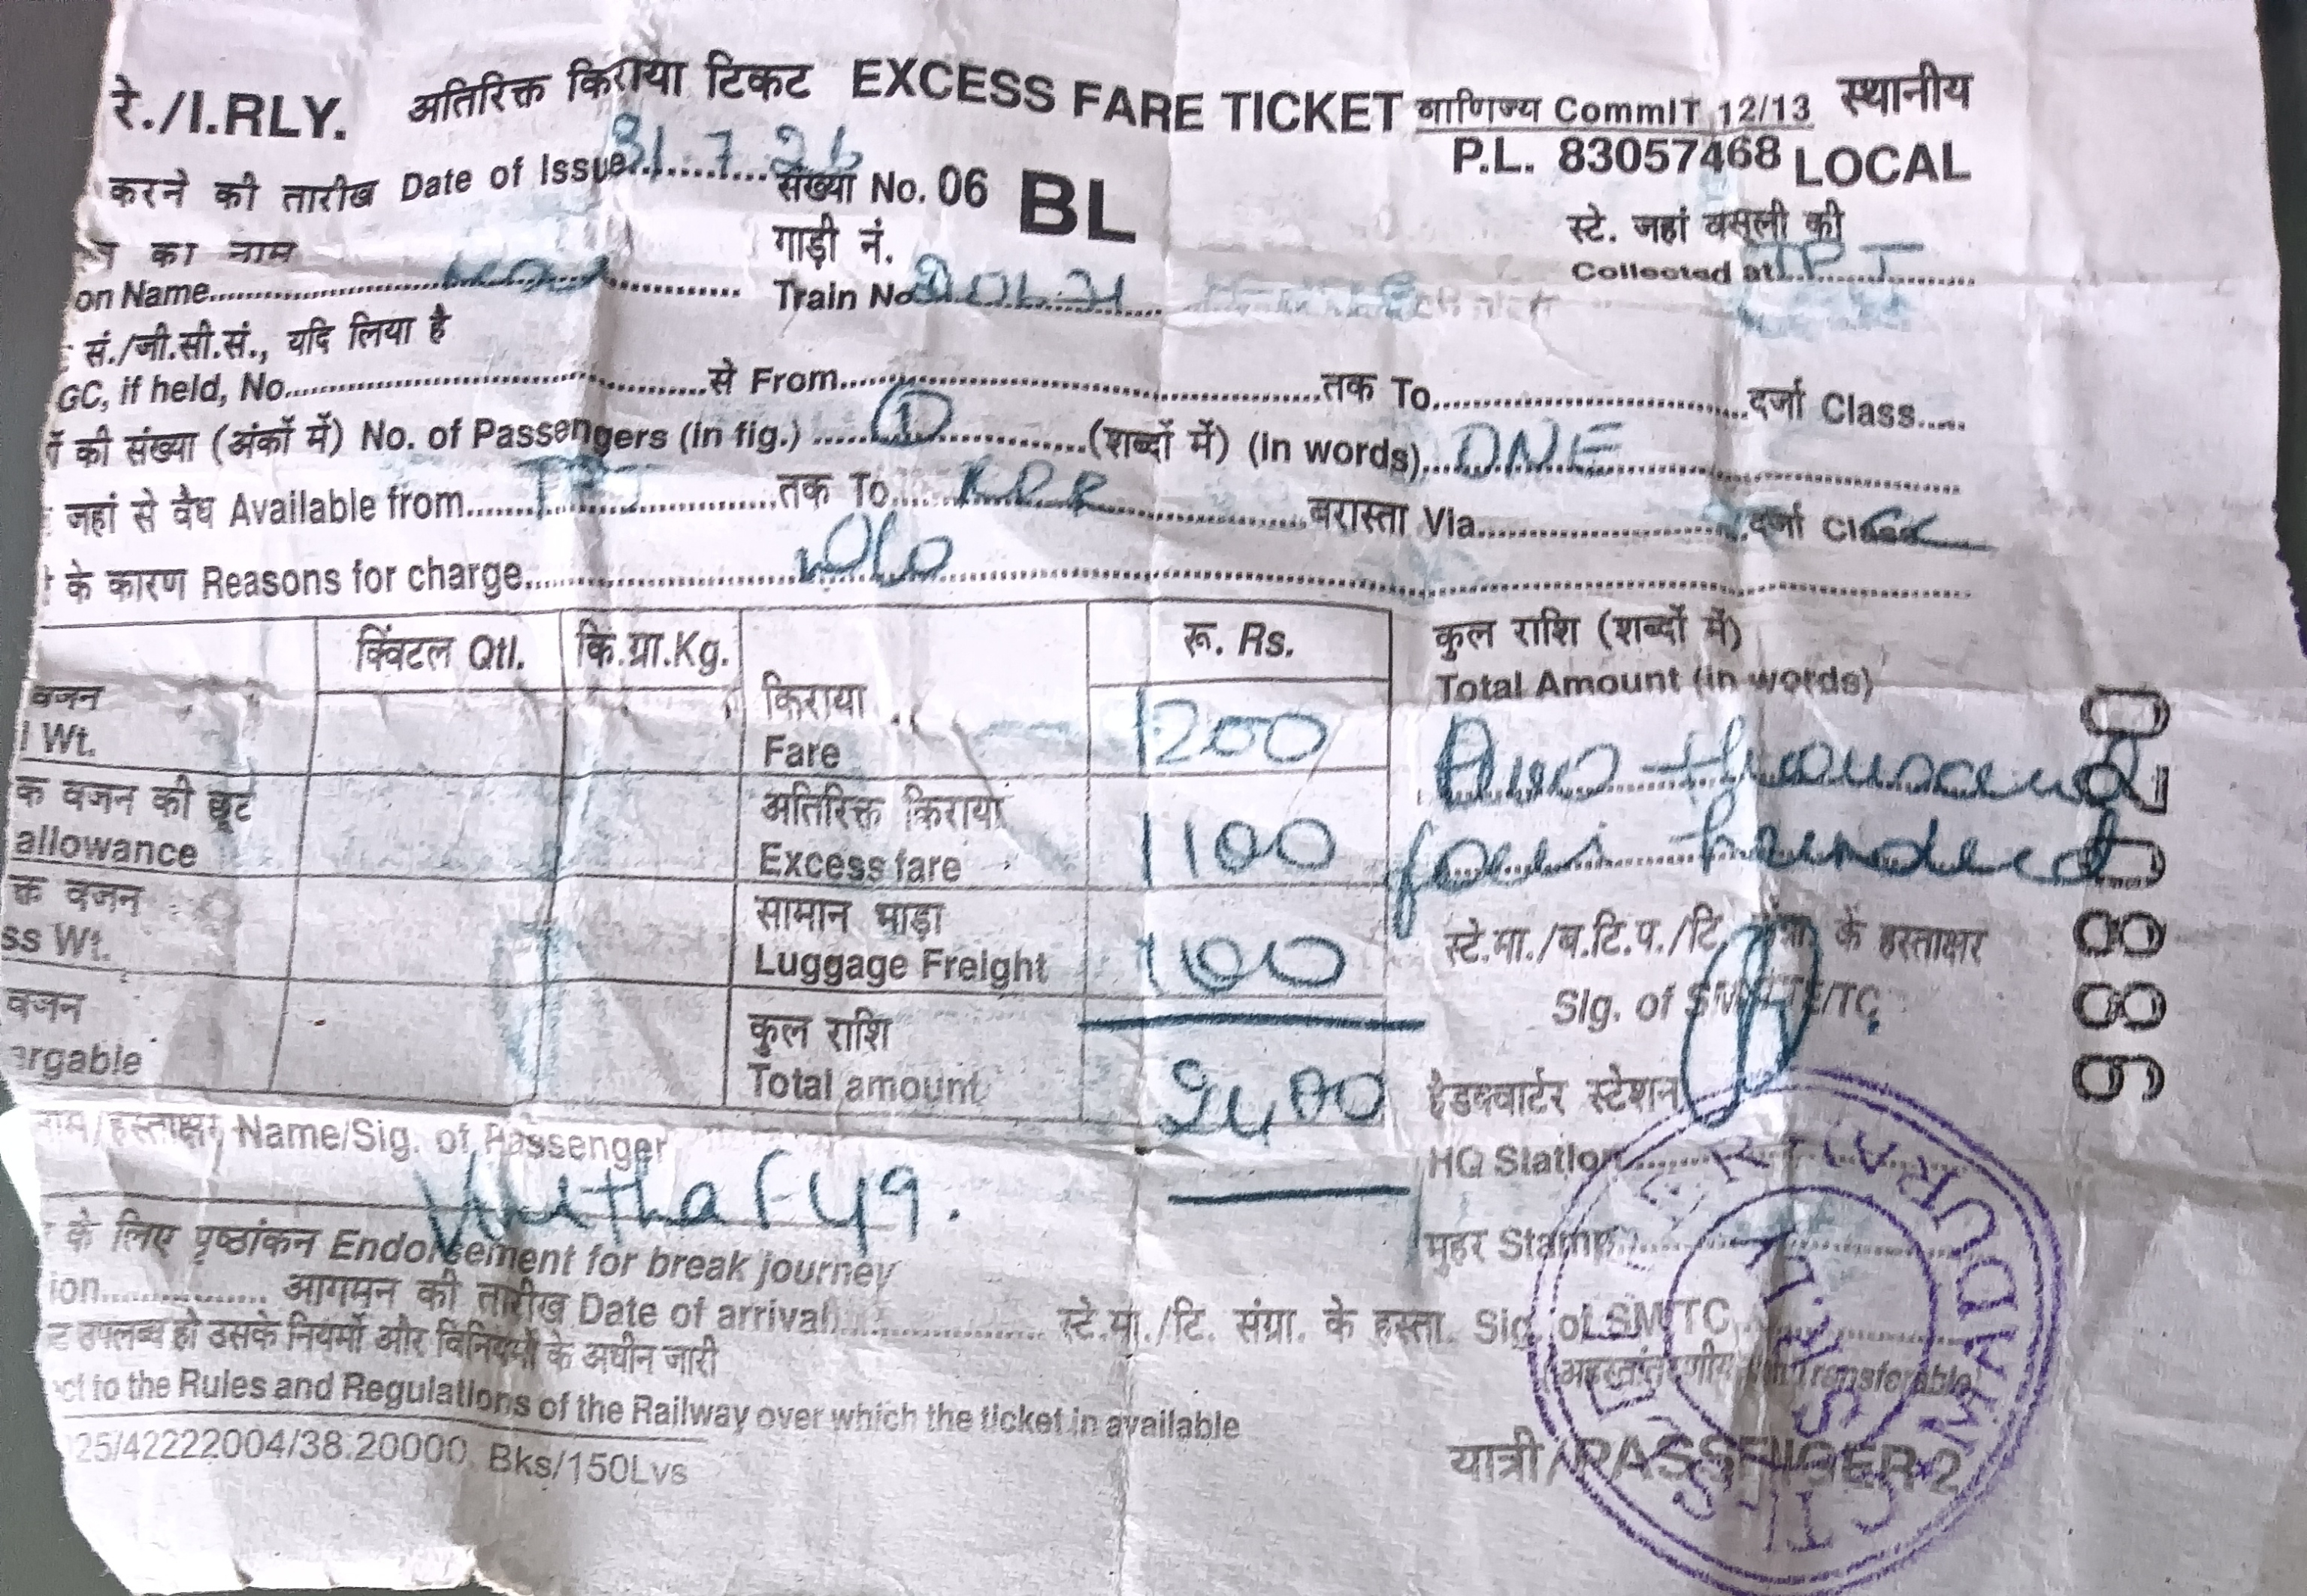 रे./I.RLY. अतिरिक्त किराया टिकट EXCESS FARE TICKET वाणिज्य CommlT 12/13 स्थानीय
P.L. 83057468 LOCAL
करने की तारीख Date of Issue 31.7.26 संख्या No. 06 BL
का नाम गाड़ी नं. स्टे. जहां वसूली की
on Name Train No Collected at TPJ
सं./जी.सी.सं., यदि लिया है
GC, if held, No से From तक To दर्जा Class
की संख्या (अंकों में) No. of Passengers (in fig.) 1 (शब्दों में) (in words) ONE
जहां से वैध Available from TPJ तक To KRR बरास्ता Via दर्जा Class
के कारण Reasons for charge
क्विंटल Qtl. कि.ग्रा.Kg. रू. Rs. कुल राशि (शब्दों में)
Total Amount (in words)
वजन किराया
Wt. Fare 1200 Two thousand
क वजन की छूट अतिरिक्त किराया
allowance Excess fare 1100 four hundred
क्त वजन सामान भाड़ा स्टे.मा./च.टि.प./टि. संग्रा. के हस्ताक्षर
ss Wt. Luggage Freight 100 Sig. of SM/TTE/TC
वजन कुल राशि
argable Total amount 2400 हैडक्वार्टर स्टेशन
HQ Station
नाम/हस्ताक्षर Name/Sig. of Passenger
F49.
मुहर Stamp
के लिए पृष्ठांकन Endorsement for break journey
ion आगमन की तारीख Date of arrival स्टे.मा./टि. संग्रा. के हस्ता. Sig. of SM/TC
उपलब्ध हो उसके नियमों और विनियमों के अधीन जारी अहस्तांतरणीय Transferable
ct to the Rules and Regulations of the Railway over which the ticket in available
25/42222004/38.20000 Bks/150Lvs यात्री/PASSENGER-2
988020
MADURAI